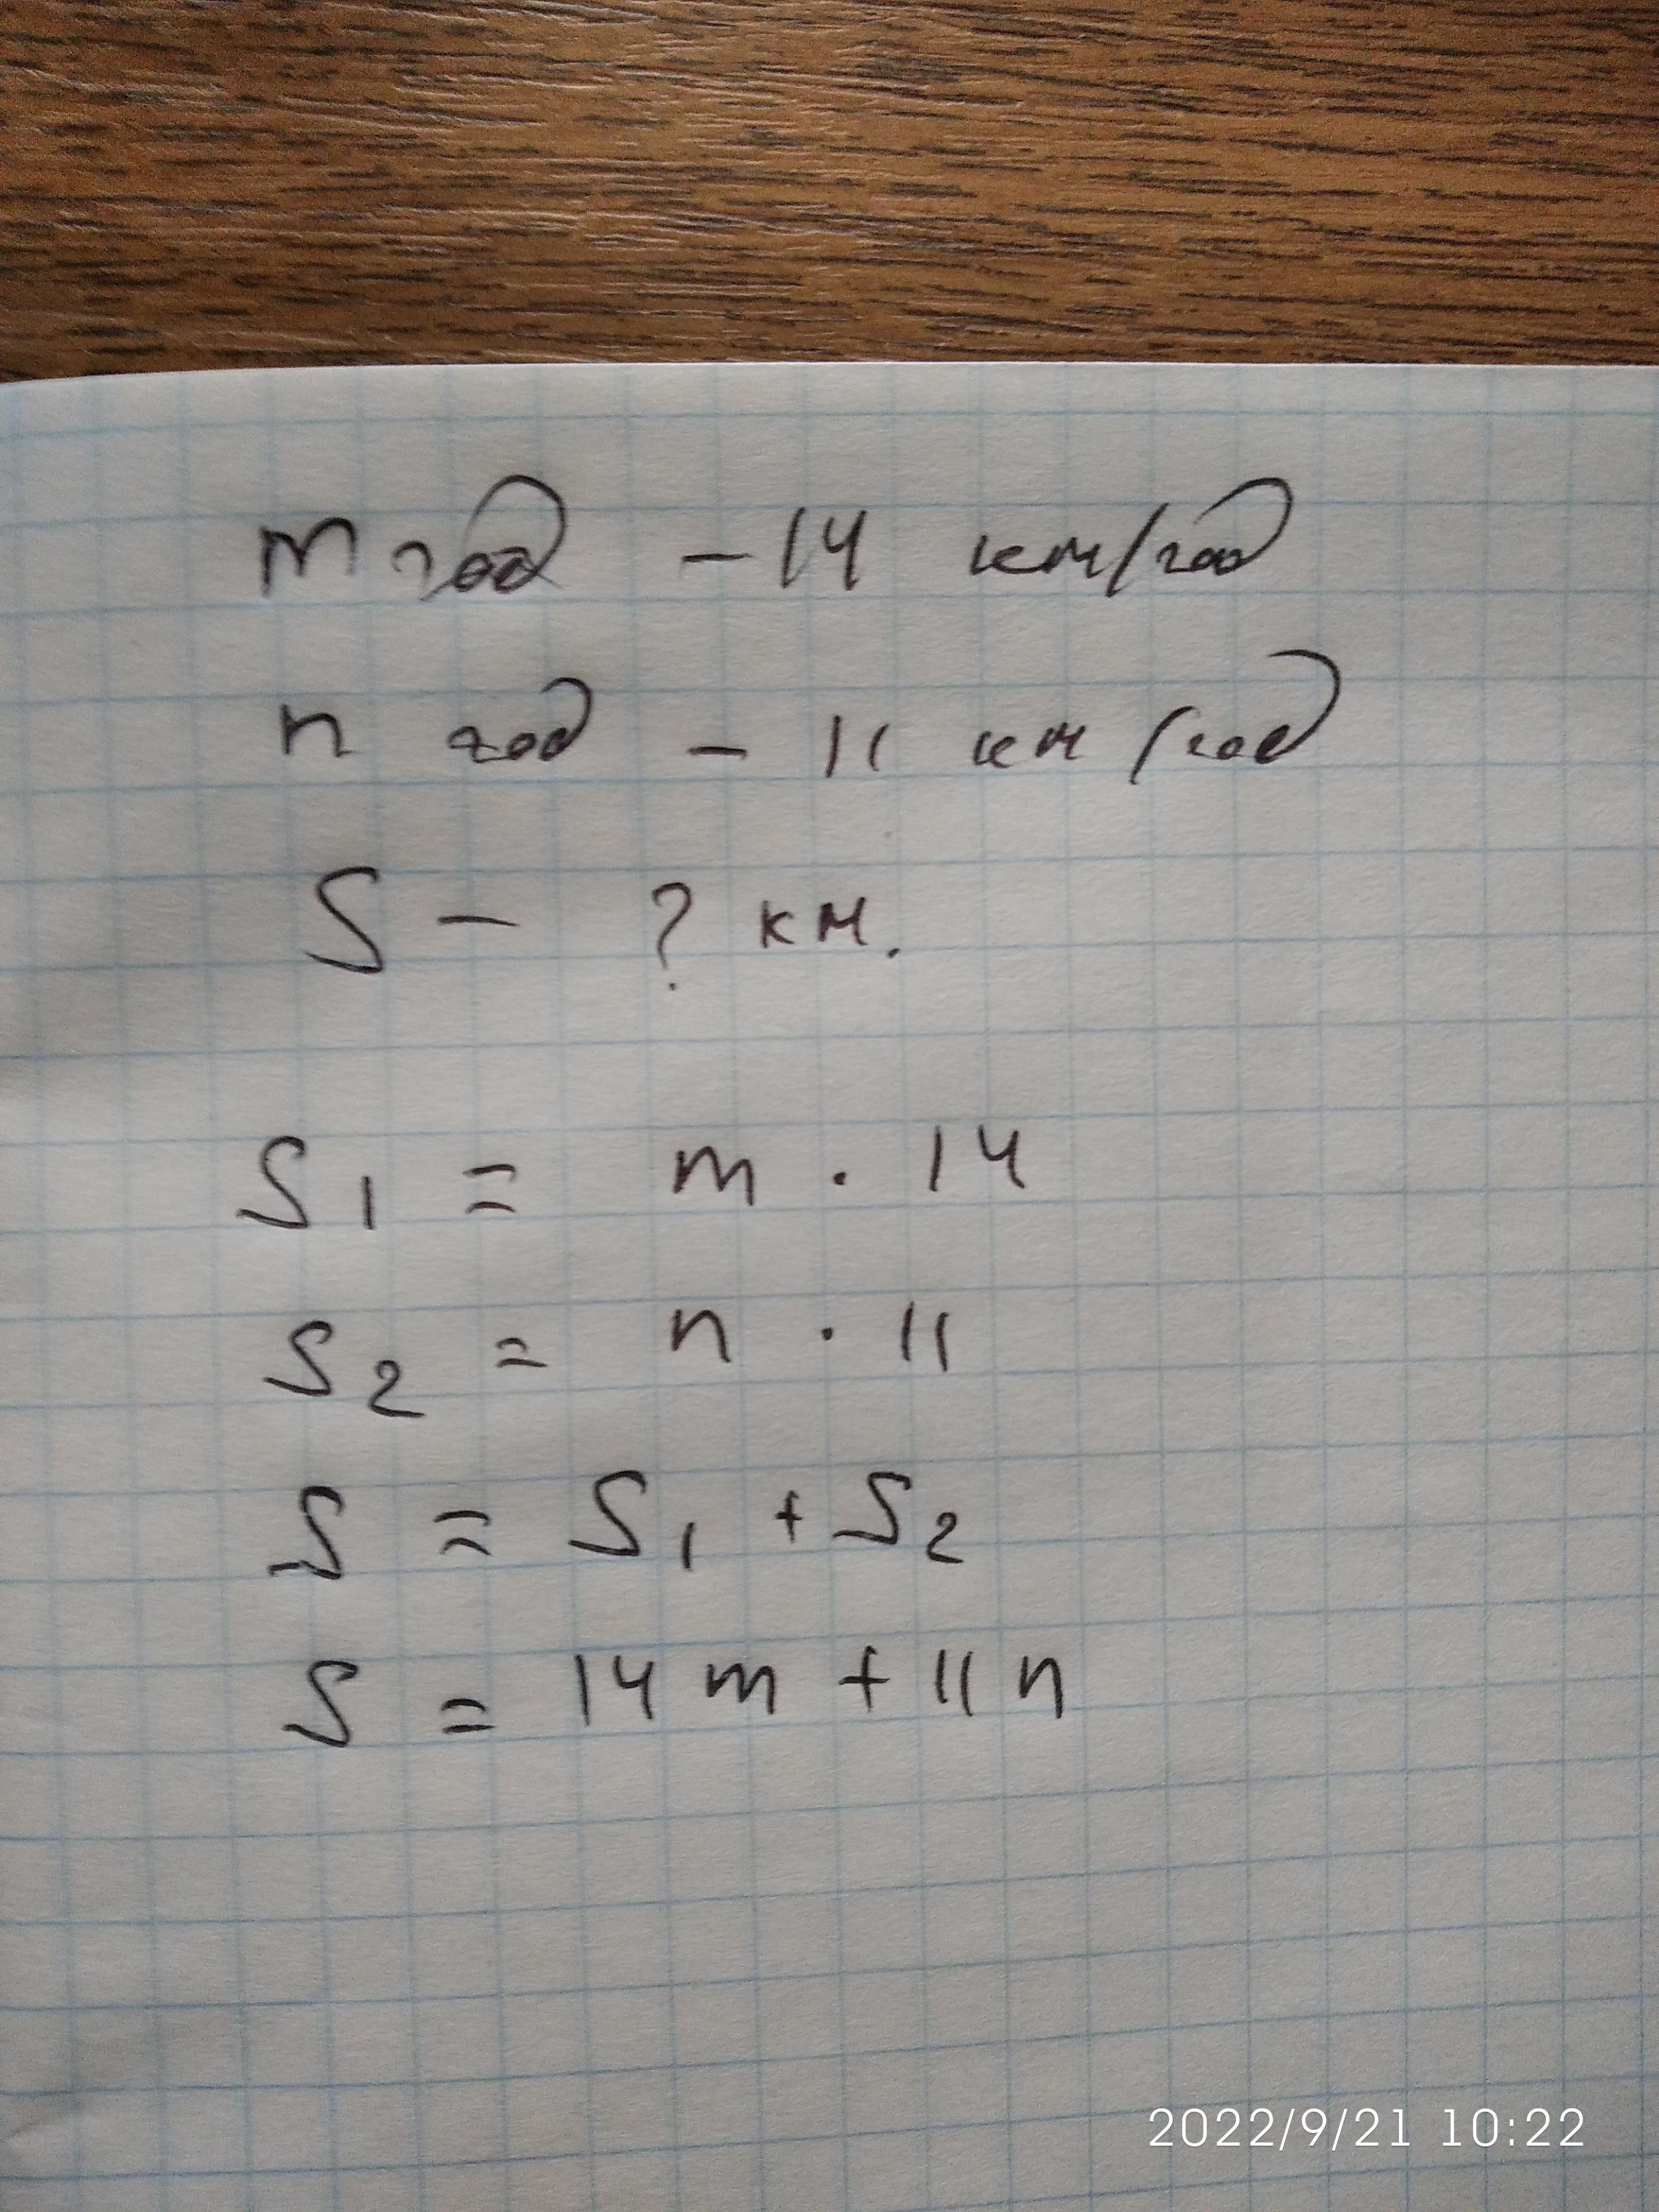 m год - 14 км/год
n год - 11 км/год
S - ? км.
S1 = m · 14
S2 = n · 11
S = S1 + S2
S = 14 m + 11 n
2022/9/21 10:22